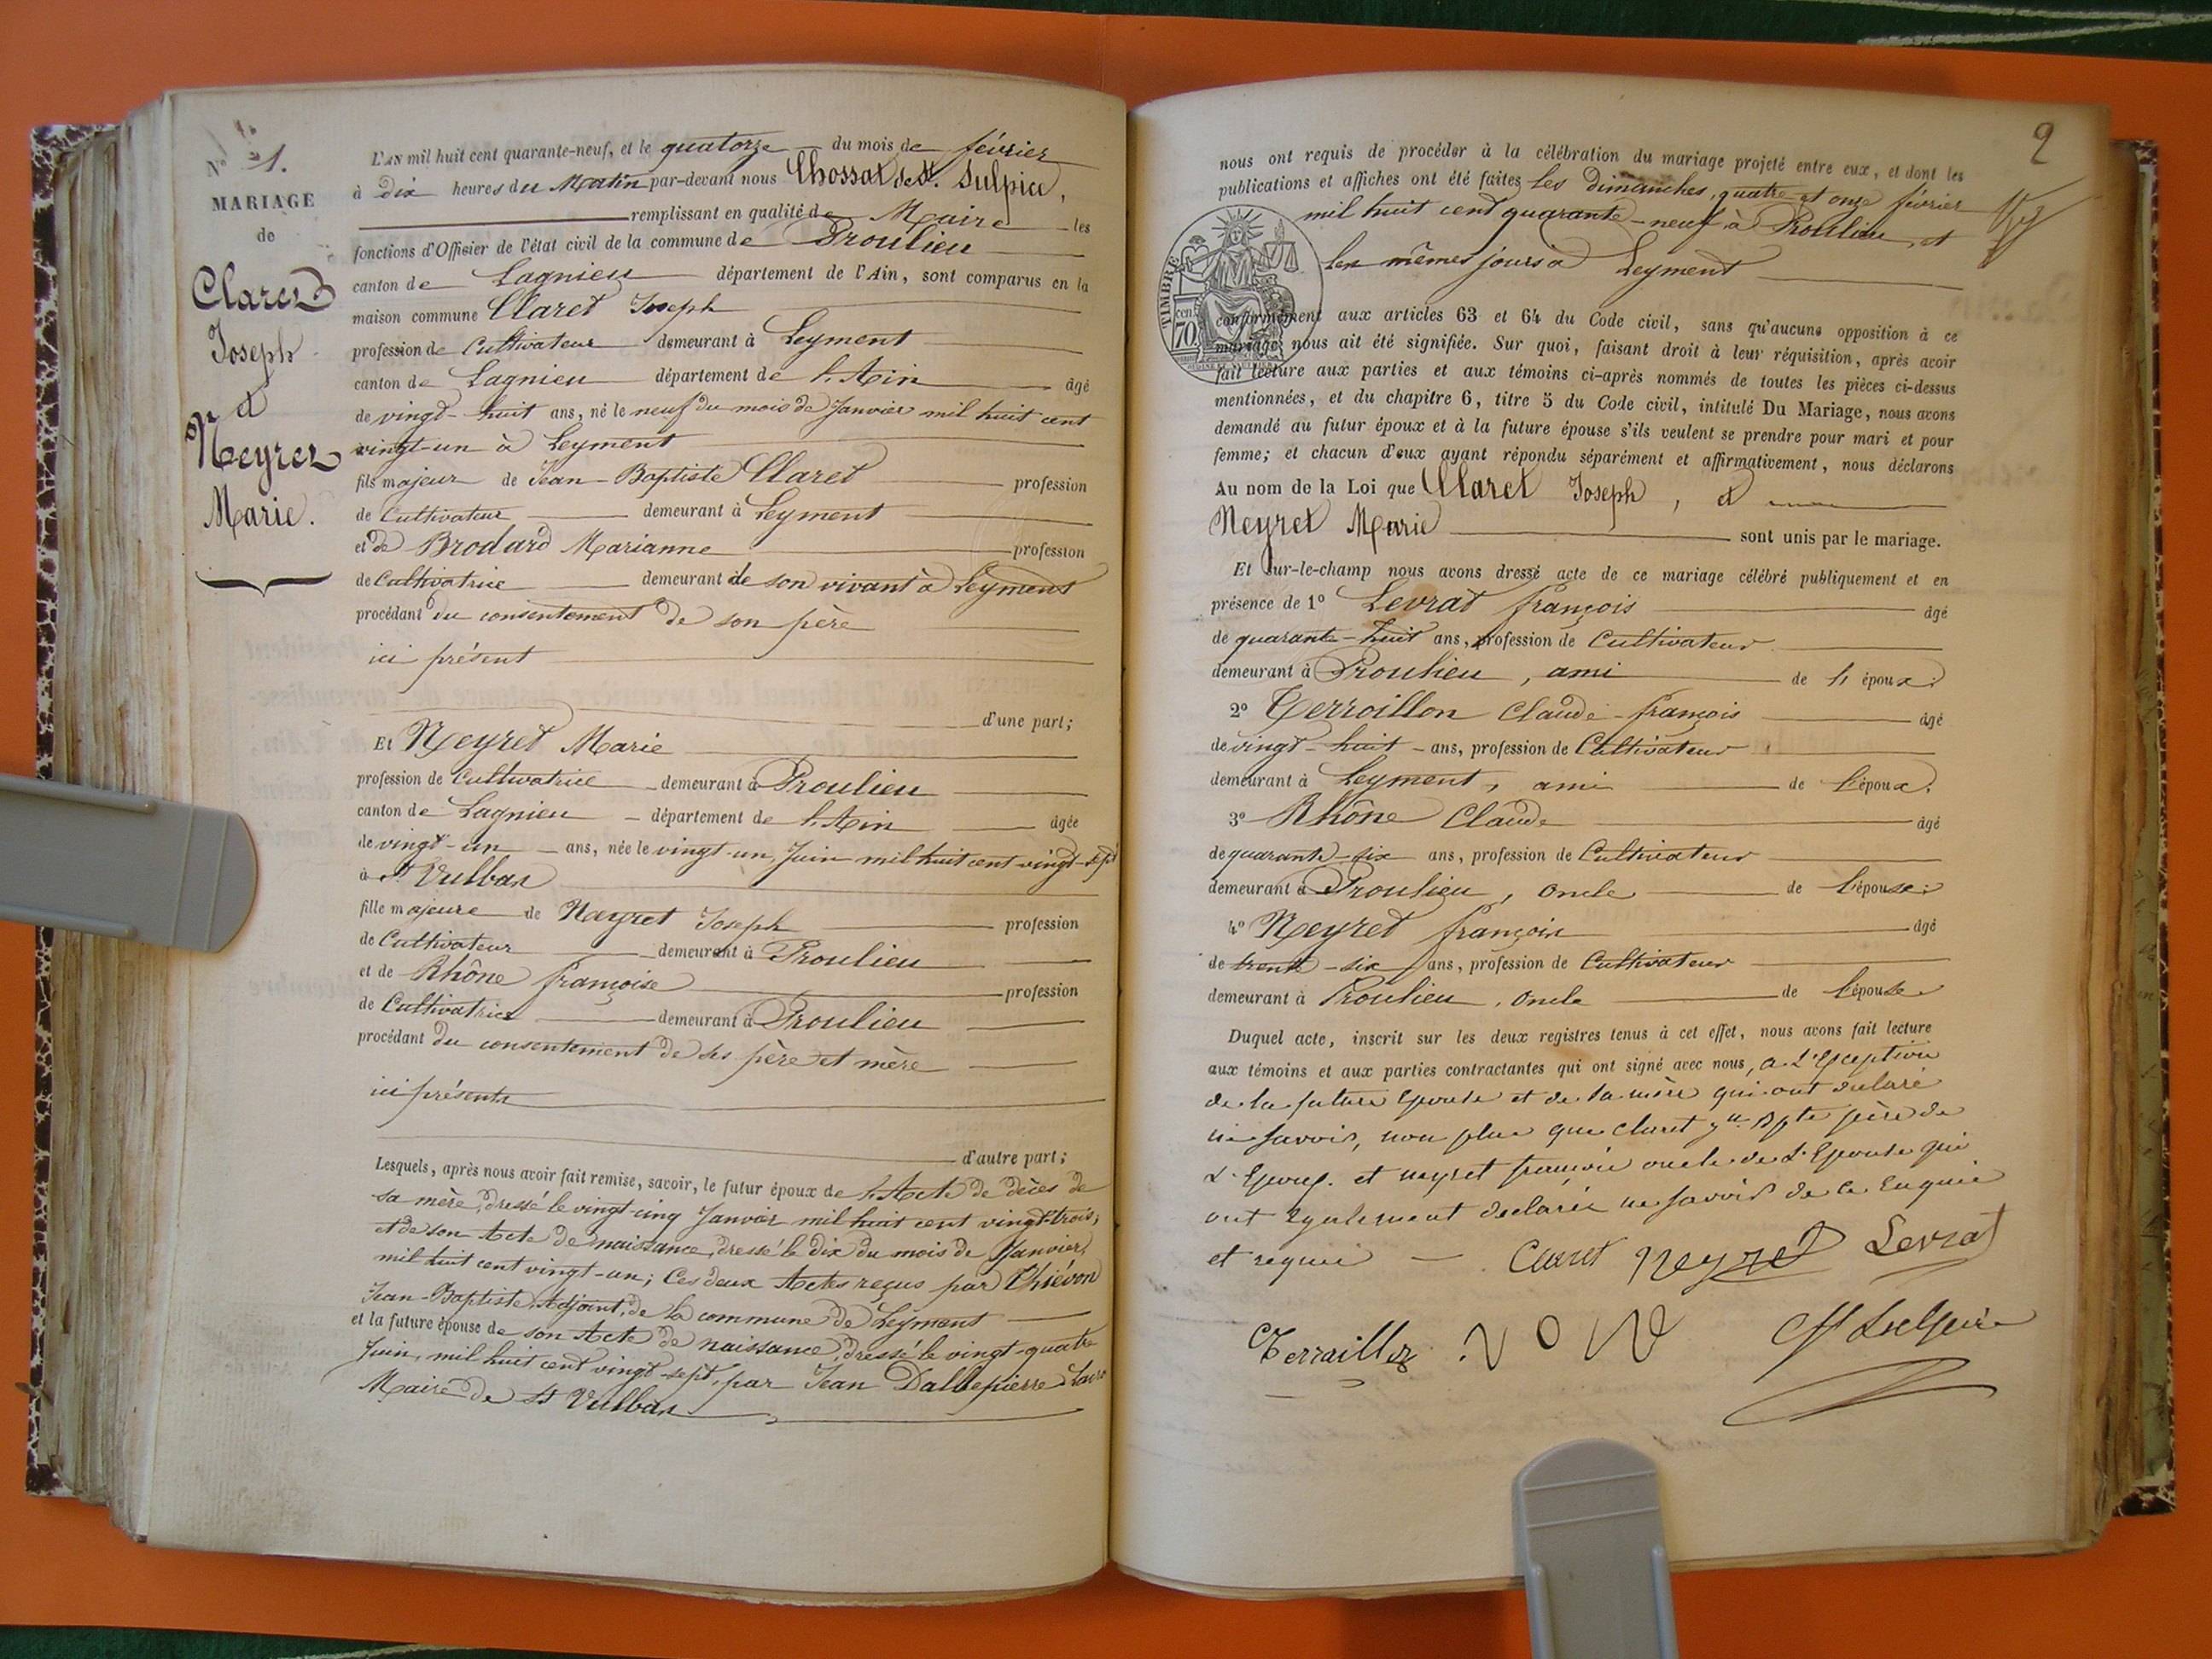 N° 1.
MARIAGE
de
Claret
Joseph
et
Neyret
Marie.
L'AN mil huit cent quarante-neuf, et le quatorze du mois de février
à dix heures du Matin par-devant nous Chossat de St. Sulpice,
remplissant en qualité de Maire les
fonctions d'Officier de l'état civil de la commune de Proulieu
canton de Lagnieu département de l'Ain, sont comparus en la
maison commune Claret Joseph
profession de Cultivateur demeurant à Leyment
canton de Lagnieu département de l'Ain âgé
de vingt-huit ans, né le neuf du mois de Janvier mil huit cent
vingt-un à Leyment
fils majeur de Jean-Baptiste Claret profession
de Cultivateur demeurant à Leyment
et de Brodard Marianne profession
de Cultivatrice demeurant de son vivant à Leyment
procédant du consentement de son père
ici présent
d'une part;
Et Neyret Marie
profession de Cultivatrice demeurant à Proulieu
canton de Lagnieu département de l'Ain âgée
de vingt-un ans, née le vingt-un Juin mil huit cent vingt-sept
à St Vulbas
fille majeure de Neyret Joseph profession
de Cultivateur demeurant à Proulieu
et de Rhône françoise profession
de Cultivatrice demeurant à Proulieu
procédant du consentement de ses père et mère
ici présents
d'autre part;
Lesquels, après nous avoir fait remise, savoir, le futur époux de l'Acte de décès de
sa mère, dressé le vingt-cinq Janvier mil huit cent vingt-trois,
et de son Acte de naissance, dressé le dix du mois de Janvier
mil huit cent vingt-un; Ces deux Actes reçus par Thiévon
Jean-Baptiste, Adjoint, de la commune de Leyment
et la future épouse de son Acte de naissance, dressé le vingt-quatre
Juin, mil huit cent vingt-sept, par Jean Dallepierre
Maire de St Vulbas
2
nous ont requis de procéder à la célébration du mariage projeté entre eux, et dont les
publications et affiches ont été faites Les dimanches, quatre et onze février
mil huit cent quarante-neuf à Proulieu, et
les mêmes jours à Leyment
TIMBRE
cent.
70
conformément aux articles 63 et 64 du Code civil, sans qu'aucune opposition à ce
mariage nous ait été signifiée. Sur quoi, faisant droit à leur réquisition, après avoir
fait lecture aux parties et aux témoins ci-après nommés de toutes les pièces ci-dessus
mentionnées, et du chapitre 6, titre 5 du Code civil, intitulé Du Mariage, nous avons
demandé au futur époux et à la future épouse s'ils veulent se prendre pour mari et pour
femme; et chacun d'eux ayant répondu séparément et affirmativement, nous déclarons
Au nom de la Loi que Claret Joseph, et
Neyret Marie sont unis par le mariage.
Et sur-le-champ nous avons dressé acte de ce mariage célébré publiquement et en
présence de 1° Levrat françois âgé
de quarante-huit ans, profession de Cultivateur
demeurant à Proulieu, ami de l'époux;
2° Terroillon Claude-françois âgé
de vingt-huit ans, profession de Cultivateur
demeurant à Leyment, ami de l'époux;
3° Rhône Claude âgé
de quarante-six ans, profession de Cultivateur
demeurant à Proulieu, oncle de l'épouse;
4° Neyret françois âgé
de trente-six ans, profession de Cultivateur
demeurant à Proulieu, oncle de l'épouse
Duquel acte, inscrit sur les deux registres tenus à cet effet, nous avons fait lecture
aux témoins et aux parties contractantes qui ont signé avec nous, a L'Exception
de la future Epouse et de sa mère qui ont declaré
ne savoir, non plus que Claret Jn Bpte père de
L'Epoux. et neyret françois oncle de L'Epouse qui
ont Egalement declarés ne savoir de ce Enquis
et requis Claret Neyret Levrat
Terraillon St Sulpice